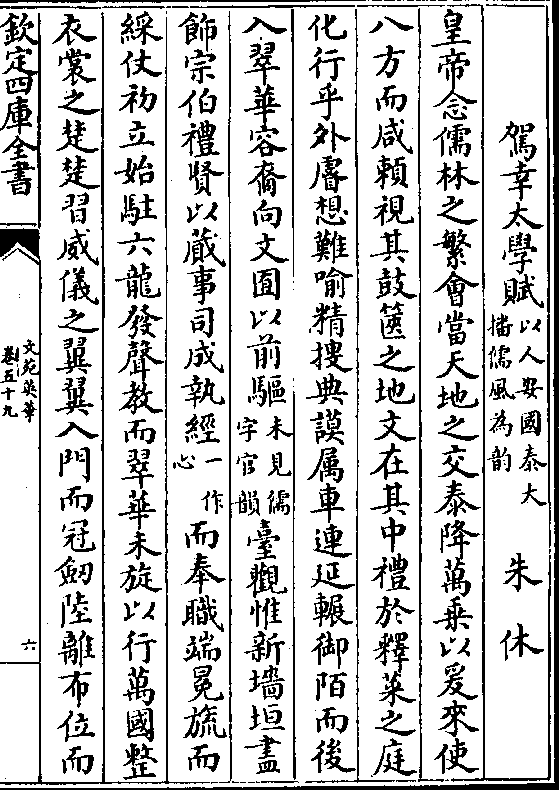 駕幸太學賦以人安國泰大播儒風為韵 朱休
皇帝念儒林之繁會當天地之交泰降萬乗以爰來使
八方而咸賴視其鼓篋之地文在其中禮於釋菜之庭
化行乎外睿想難喻精搜典謨属車連延輾御陌而後
入翠華容裔向文囿以前驅未見儒字官韻臺觀惟新墻垣盡
飾宗伯禮賢以蕆事司成執經一作心而奉職端冕旒而
綵仗初立始駐六龍發聲教而翠華未旋以行萬國整
衣裳之楚楚習威儀之翼翼入門而冠劒陸離布位而
欽定四庫全書
文苑英華
卷五十九
六